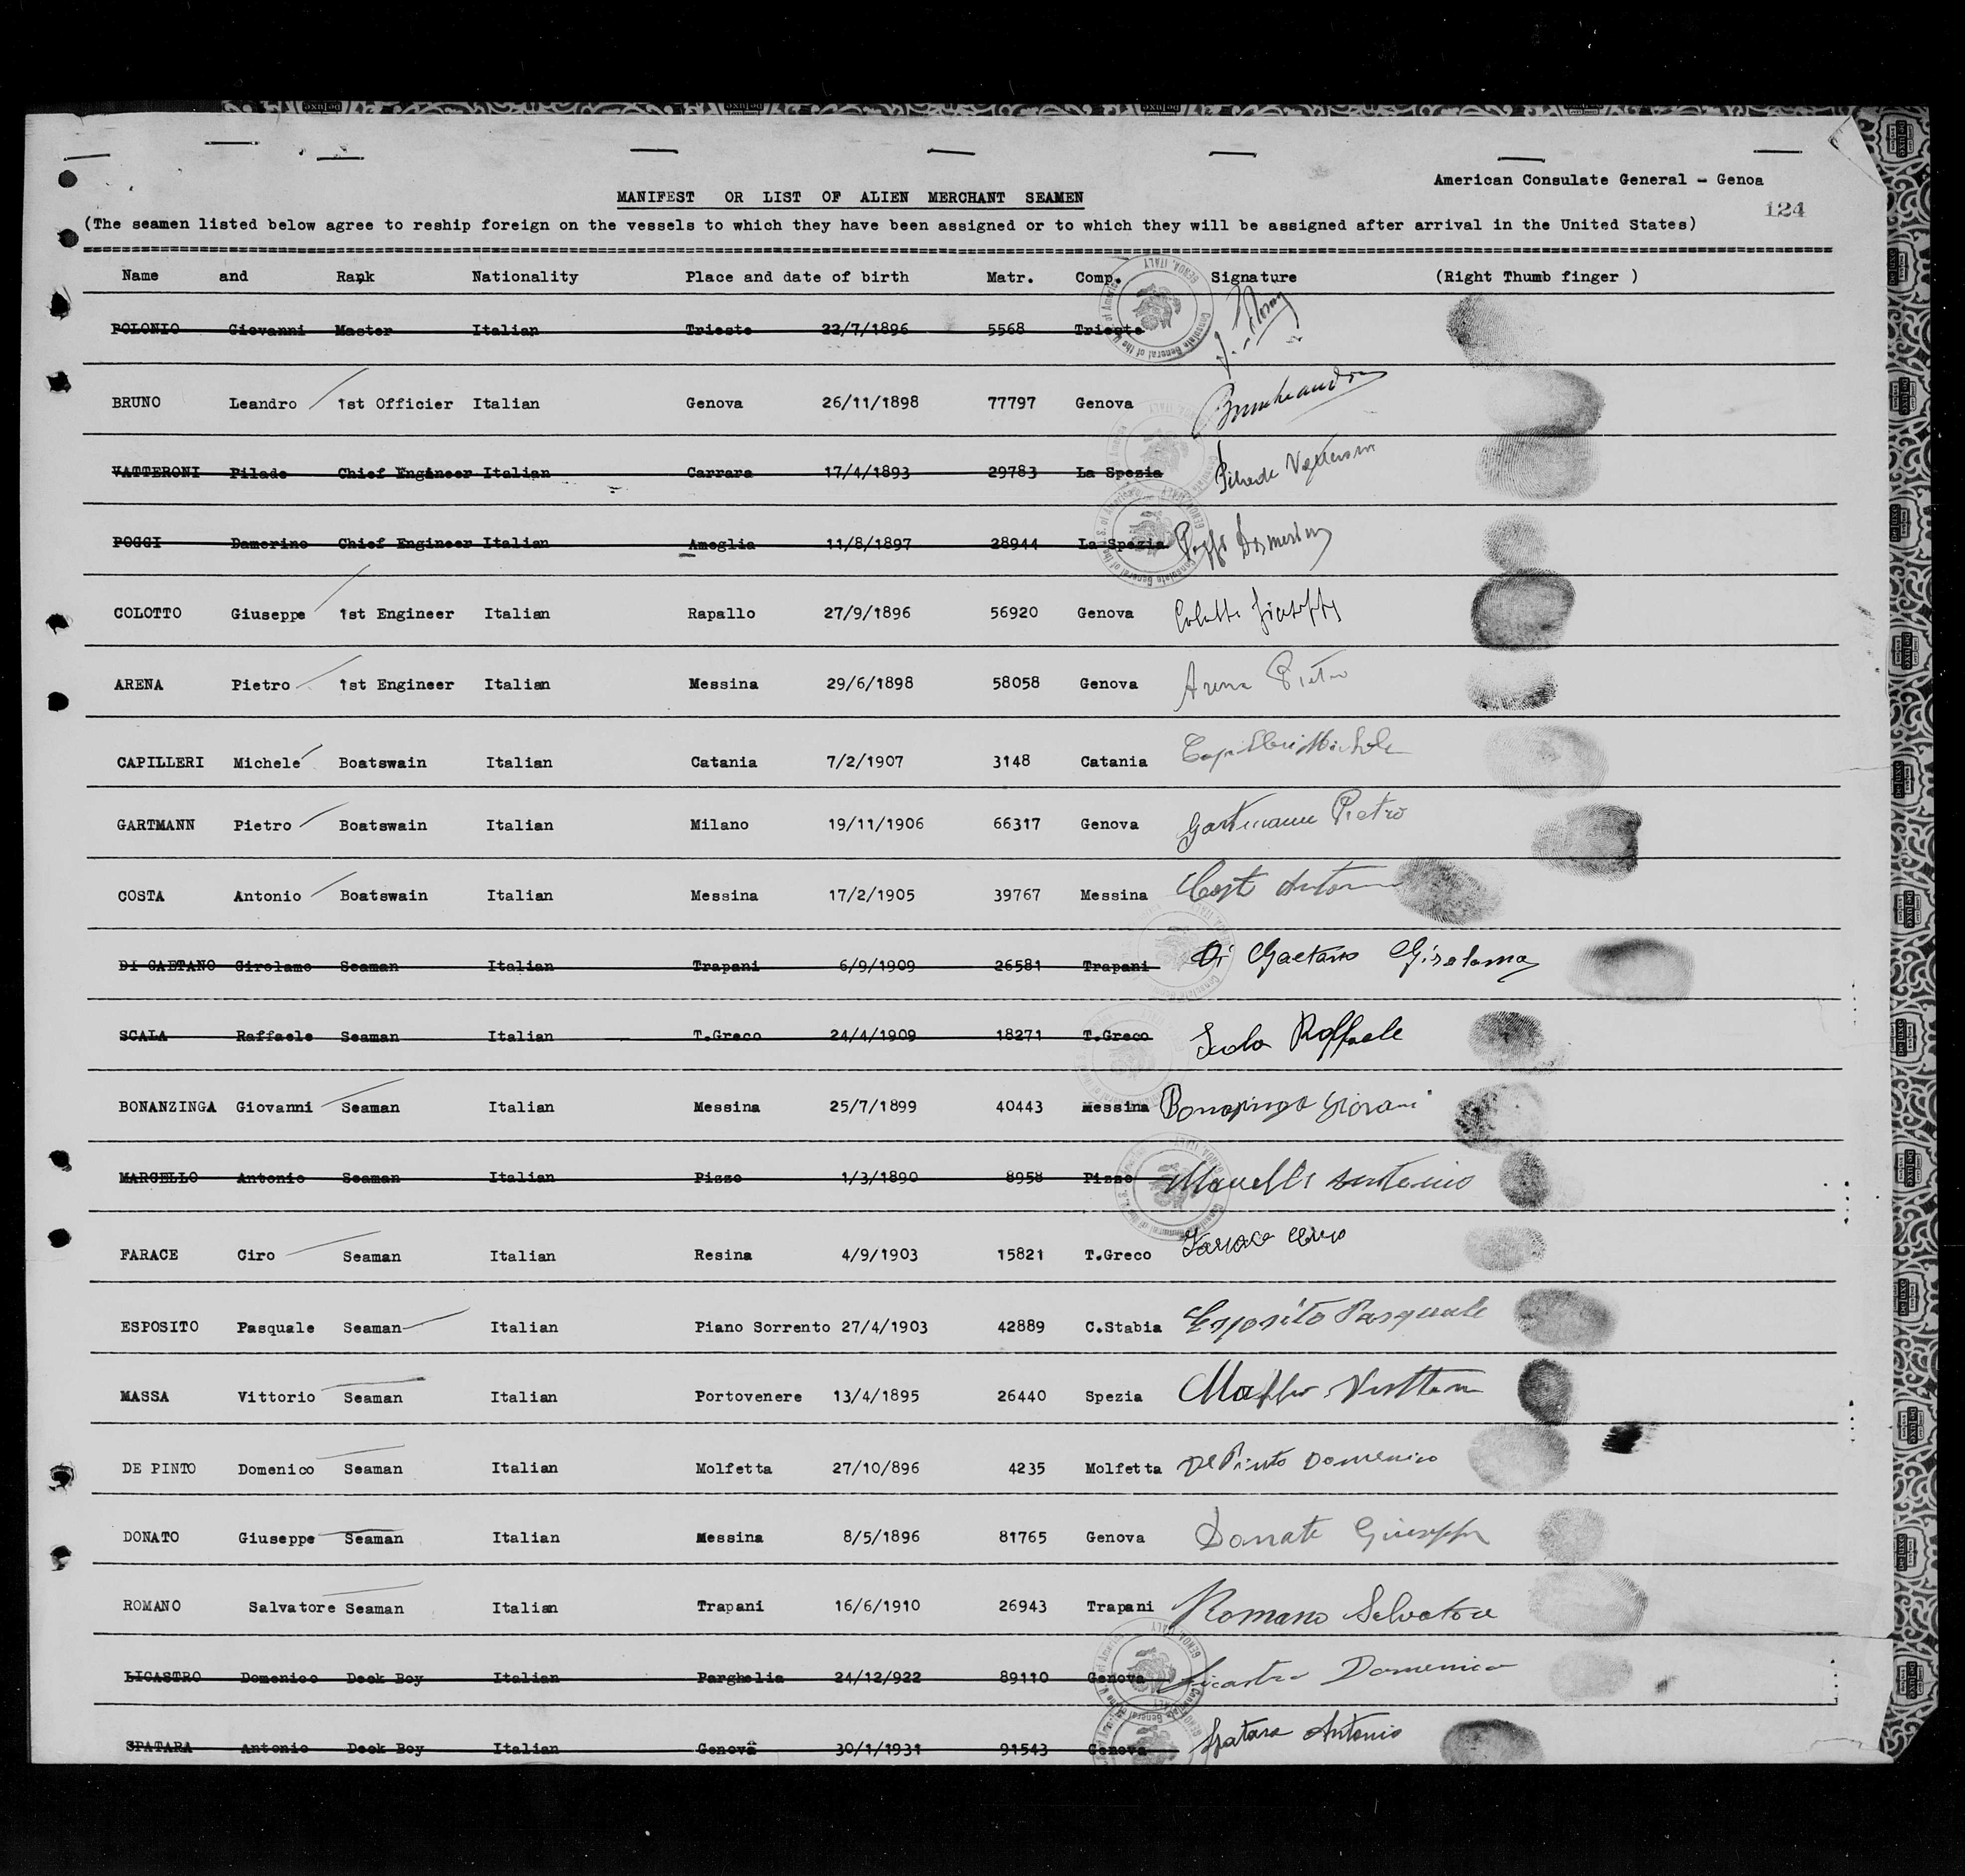 American Consulate General - Genoa
MANIFEST OR LIST OF ALIEN MERCHANT SEAMEN
124
(The seamen listed below agree to reship foreign on the vessels to which they have been assigned or to which they will be assigned after arrival in the United States)
Name and Rank Nationality Place and date of birth Matr. Comp. Signature (Right Thumb finger )
POLONIO Giovanni Master Italian Trieste 22/7/1896 5568 Trieste
BRUNO Leandro 1st Officier Italian Genova 26/11/1898 77797 Genova
VATTERONI Pilade Chief Engineer Italian Carrara 17/4/1893 29783 La Spezia Pilade Vatteroni
POGGI Damerino Chief Engineer Italian Ameglia 11/8/1897 28944 La Spezia Poggi Damerino
COLOTTO Giuseppe 1st Engineer Italian Rapallo 27/9/1896 56920 Genova Colotto Giuseppe
ARENA Pietro 1st Engineer Italian Messina 29/6/1898 58058 Genova Arena Pietro
CAPILLERI Michele Boatswain Italian Catania 7/2/1907 3148 Catania Capilleri Michele
GARTMANN Pietro Boatswain Italian Milano 19/11/1906 66317 Genova Gartmann Pietro
COSTA Antonio Boatswain Italian Messina 17/2/1905 39767 Messina Costa Antonio
DI GAETANO Girolamo Seaman Italian Trapani 6/9/1909 26581 Trapani Di Gaetano Girolamo
SCALA Raffaele Seaman Italian T.Greco 24/4/1909 18271 T.Greco Scala Raffaele
BONANZINGA Giovanni Seaman Italian Messina 25/7/1899 40443 Messina Bonanzinga Giovani
MARCELLO Antonio Seaman Italian Pizzo 1/3/1890 8958 Pizzo Marcello Antonio
FARACE Ciro Seaman Italian Resina 4/9/1903 15821 T.Greco Farace Ciro
ESPOSITO Pasquale Seaman Italian Piano Sorrento 27/4/1903 42889 C.Stabia Esposito Pasquale
MASSA Vittorio Seaman Italian Portovenere 13/4/1895 26440 Spezia Massa Vittorio
DE PINTO Domenico Seaman Italian Molfetta 27/10/896 4235 Molfetta De Pinto Domenico
DONATO Giuseppe Seaman Italian Messina 8/5/1896 81765 Genova Donato Giuseppe
ROMANO Salvatore Seaman Italian Trapani 16/6/1910 26943 Trapani Romano Salvatore
LICASTRO Domenico Deck Boy Italian Parghelia 24/12/922 89110 Genova Licastro Domenico
SPATARA Antonio Deck Boy Italian Genova 30/1/1931 91543 Genova Spatara Antonio